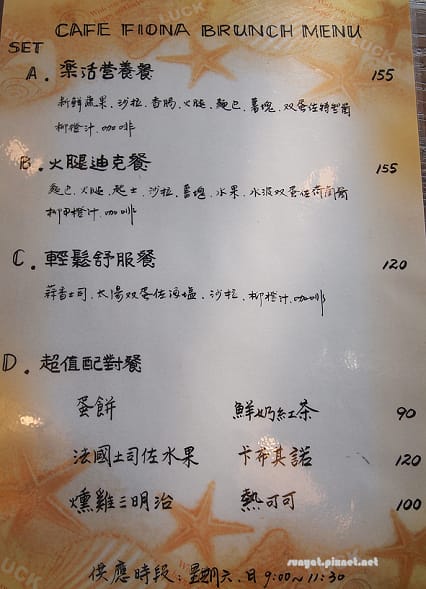 CAFE FIONA BRUNCH MENU
SET
A. 樂活營養餐 155
新鮮蔬果、沙拉、香腸、火腿、麵包、薯塊、双蛋佐特製醬
柳橙汁、咖啡
B. 火腿迪克餐 155
麵包、火腿、起士、沙拉、薯塊、水果、水波双蛋佐荷蘭醬
柳橙汁、咖啡
C. 輕鬆舒服餐 120
蒜香土司、太陽双蛋佐海塩、沙拉、柳橙汁、咖啡
D. 超值配對餐
蛋餅 鮮奶紅茶 90
法國土司佐水果 卡布其諾 120
燻雞三明治 熱可可 100
供應時段:星期六、日 9:00~11:30
sunyat.pixnet.net